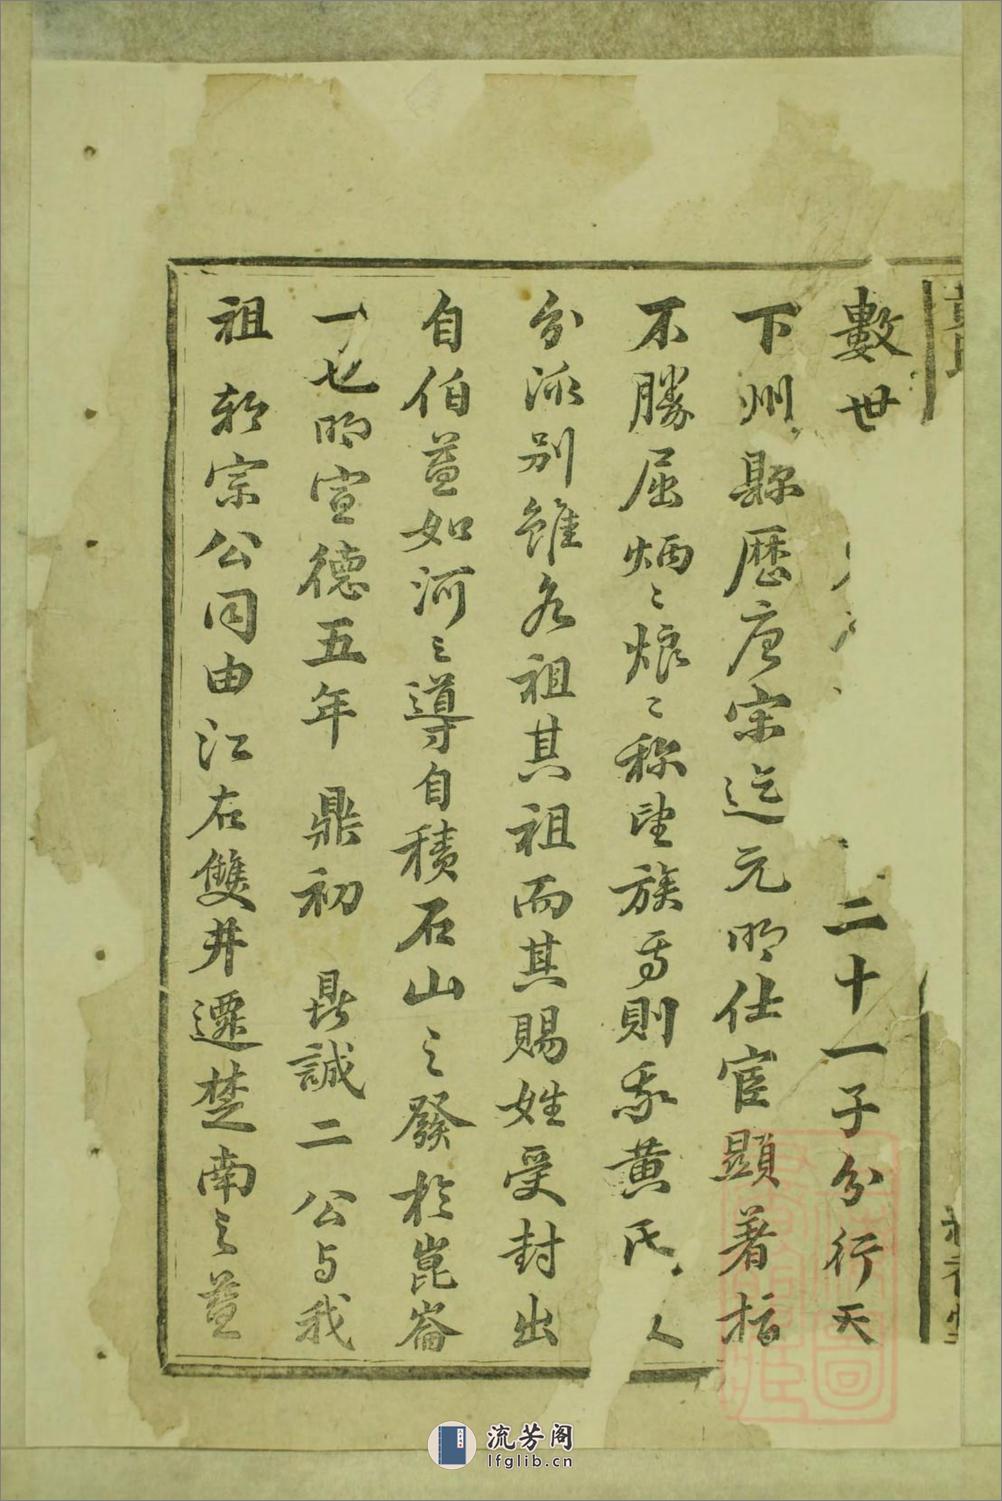 數世
二十一子分行天
下州縣歷唐宋迄元明仕宦顯著指
不勝屈炳〻烺〻称望族焉則我黄氏
人
分派别雖各祖其祖而其賜姓受封出
自伯益如河之導自積石山之發於崑崙
一也明宣德五年 鼎初 鼎誠二公与我
祖 朝宗公同由江右雙井遷楚南之益
流芳阁
lfglib.cn